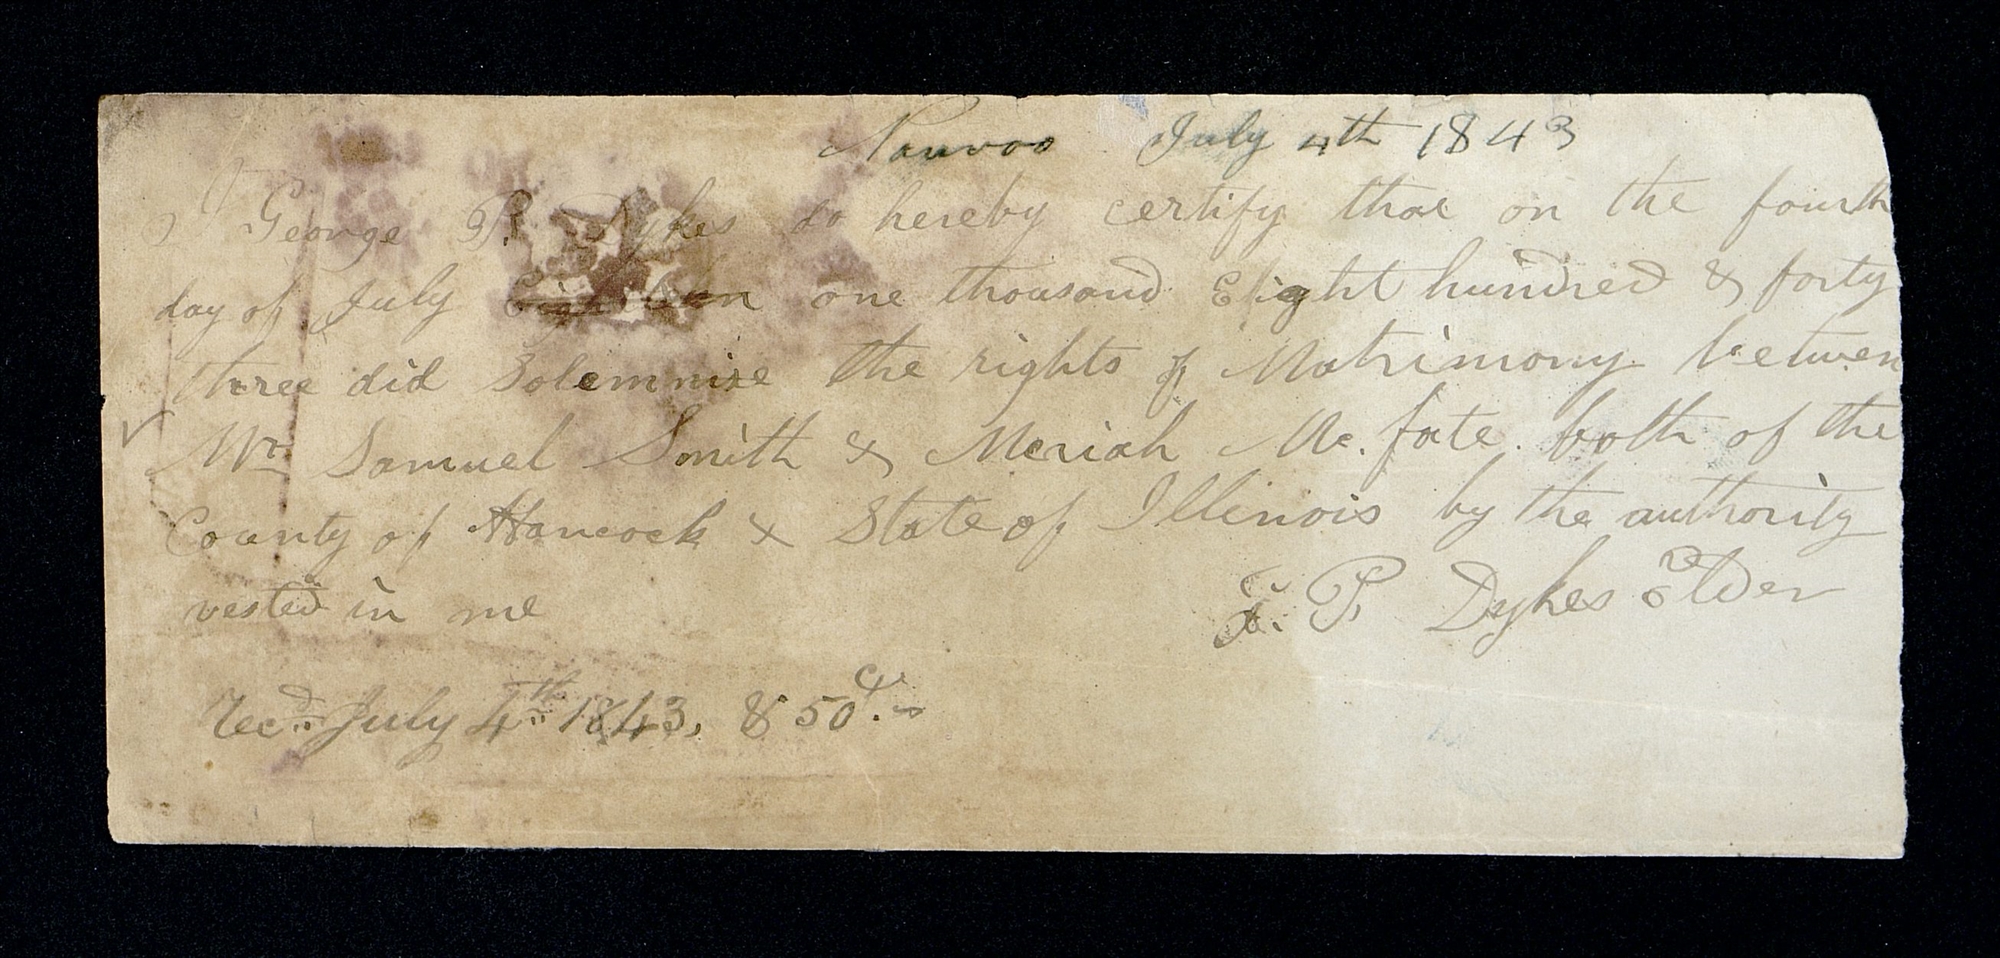 Nauvoo July 4th 1843
I George P. Dykes do hereby certify that on the fourth
day of July one thousand Eight hundred & forty
three did Solemnise the rights of Matrimony between
Mr Samuel Smith & Meriah Mc.fate. both of the
County of Hancock & State of Illinois by the authority
vested in me
G. P. Dykes Elder
Recd. July 4th 1843, & 50 cts.